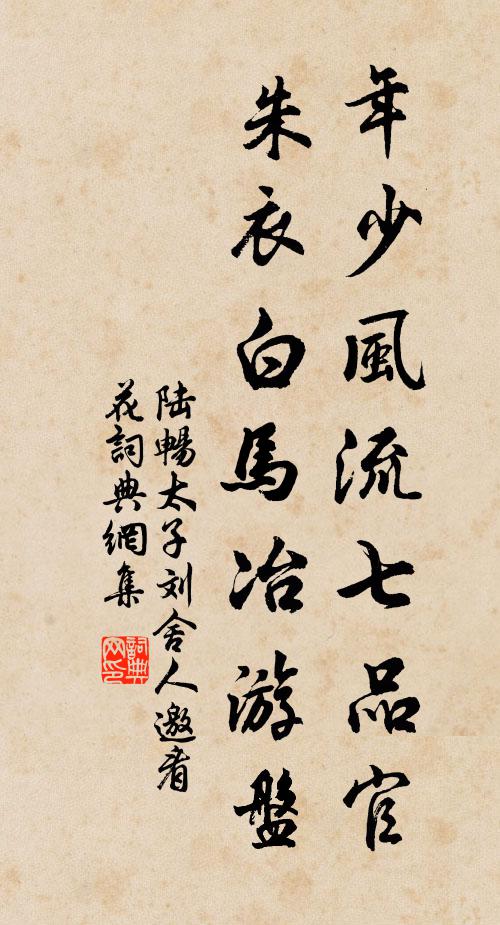 年少風流七品官
朱衣白馬冶游盤
陆暢太子刘舍人邀看
花詞典網集
詞典
网印